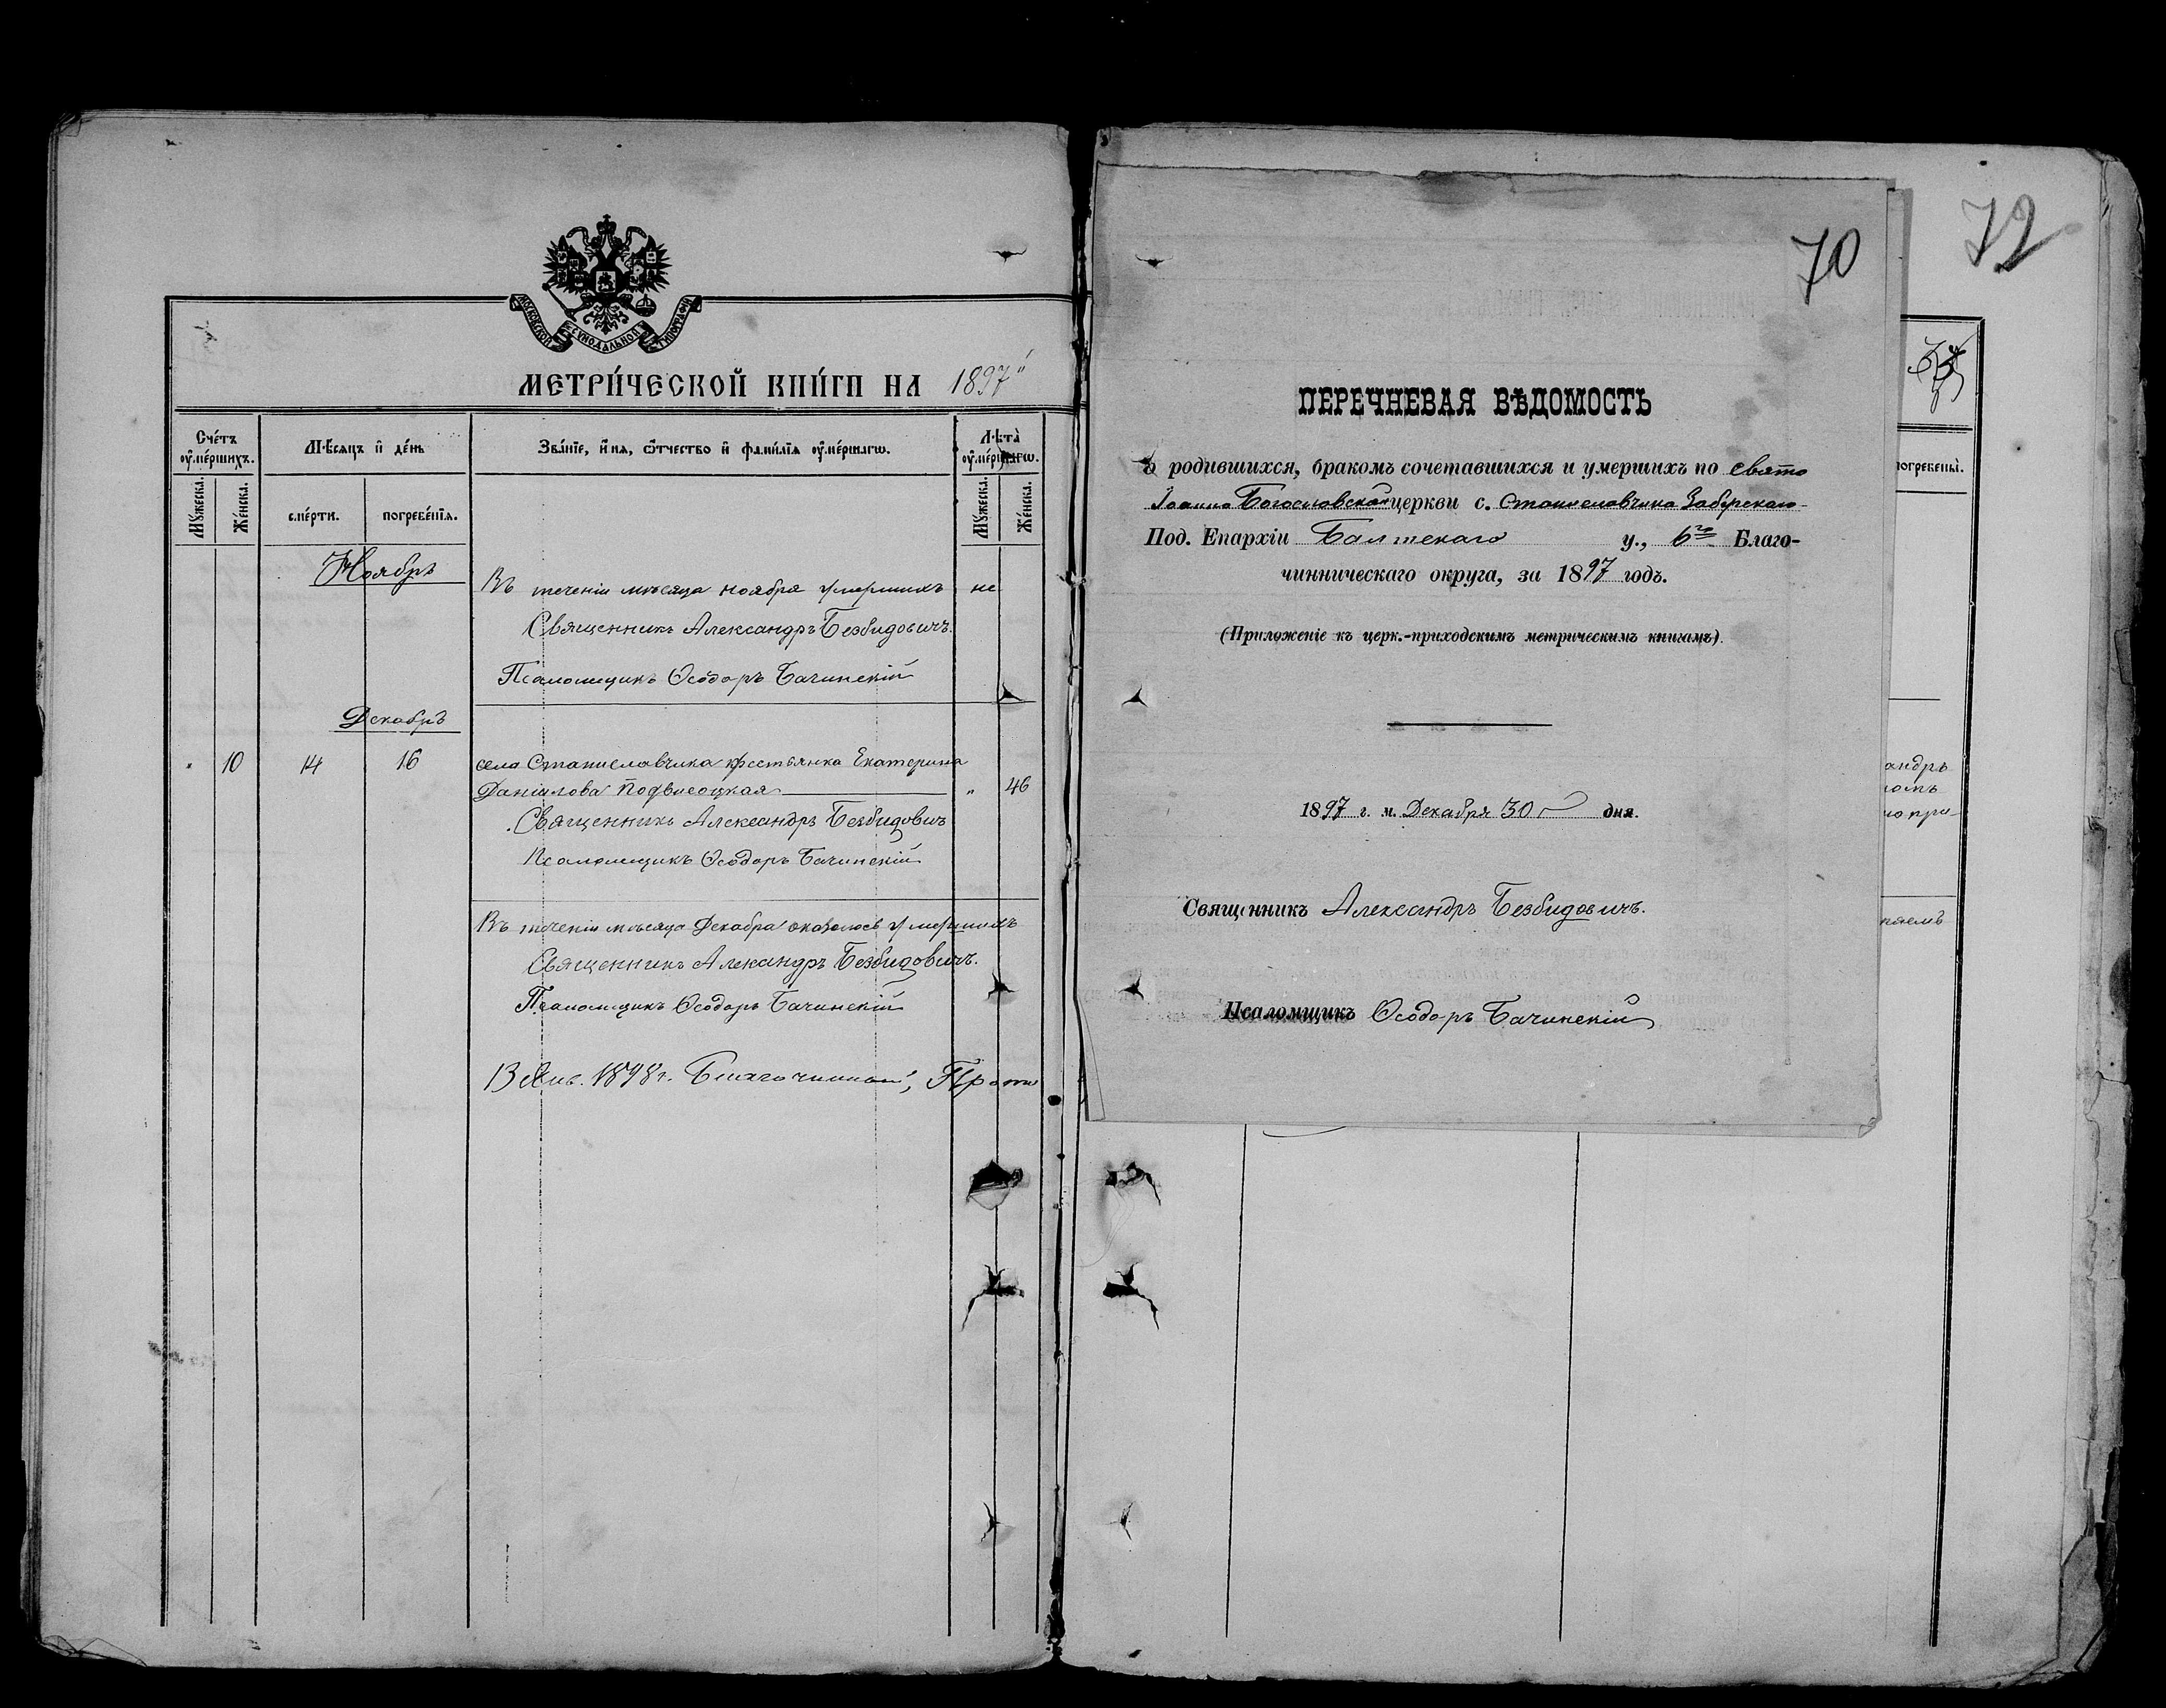 МОСКОВСКОЙ СУНОДАЛЬНОЙ ТИПОГРАФІИ
МЕТРИ́ЧЕСКОЙ КНИ́ГИ НА 1897
Сче́тъ оу҆ме́ршихъ.
Мѣ́сяцъ и҆ де́нь
Зва́нїе, и҆́мя, ѻ҆́тчество и҆ фами́лїя оу҆ме́ршагѡ.
Лѣ́та̀ оу҆ме́ршагѡ.
Му́жеска.
Же́нска.
сме́рти.
погребе́нїя.
Му́жеска.
Же́нска.
Ноябрь
Въ теченіи мѣсяца ноября умершихъ не
Священникъ Александръ Безбидовичъ.
Псаломщикъ Ѳеодоръ Бачинскій
Декабрь
" 10 14 16 села Станиславчика крестьянка Екатерина
Даніилова Подвысоцкая " 46
Священникъ Александръ Безбидовичъ
Псаломщикъ Ѳеодоръ Бачинскій
Въ теченіи мѣсяца Декабря оказалось умершихъ
Священникъ Александръ Безбидовичъ.
Псаломщикъ Ѳеодоръ Бачинскій
13 Янв. 1898 г. Благочинный, Прото
70
ПЕРЕЧНЕВАЯ ВѢДОМОСТЬ
о родившихся, бракомъ сочетавшихся и умершихъ по Свято
Іоанно Богословской церкви с. Станиславчика Заберскаго
Под. Епархіи Балтскаго у., 6го Благо-
чинническаго округа, за 1897 годъ.
(Приложеніе къ церк.-приходскимъ метрическимъ книгамъ).
1897 г. м. Декабря 30 дня.
Священникъ Александръ Безбидовичъ.
Псаломщикъ Ѳеодоръ Бачинскій
72
погребены̀.
андръ
омъ
по при-